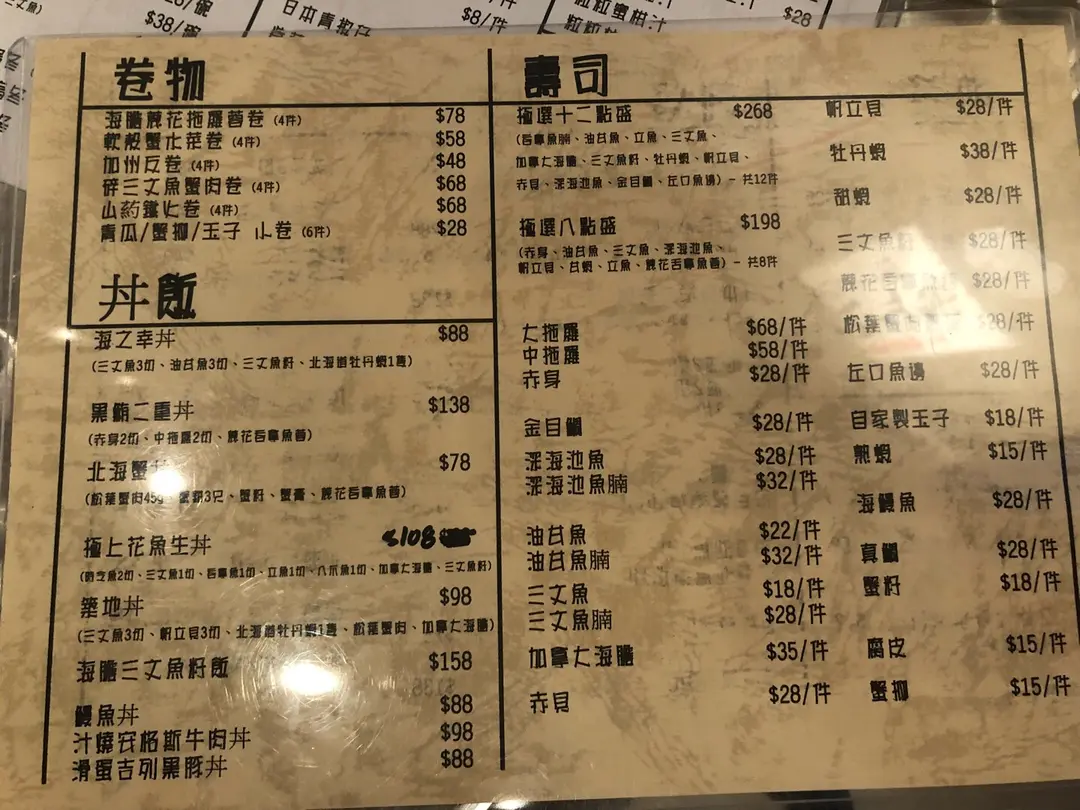 $38/碗
日本青椒仔
$8/件
粒粒蜜柑汁
$28
卷物
海膽蔥花拖羅蓉卷 (4件) $78
軟殼蟹水菜卷 (4件) $58
加州反卷 (4件) $48
碎三文魚蟹肉卷 (4件) $68
山葯鐵火卷 (4件) $68
青瓜/蟹柳/玉子 小卷 (6件) $28
丼飯
海之幸丼 $88
(三文魚3切、油甘魚3切、三文魚籽、北海道牡丹蝦1隻)
黑鮪二重丼 $138
(赤身2切、中拖羅2切、蔥花吞拿魚蓉)
北海蟹 $78
(松葉蟹肉45g、蟹柳3只、蟹籽、蟹膏、蔥花吞拿魚蓉)
極上花魚生丼 $108
(三文魚1切、吞拿魚1切、立魚1切、八爪魚1切、加拿大海膽、三文魚籽)
築地丼 $98
(三文魚3切、帆立貝3切、北海道牡丹蝦1隻、松葉蟹肉、加拿大海膽)
海膽三文魚籽飯 $158
鰻魚丼 $88
汁燒安格斯牛肉丼 $98
滑蛋吉列黑豚丼 $88
壽司
極選十二點盛 $268
(吞拿魚腩、油甘魚、立魚、三文魚、
加拿大海膽、三文魚籽、牡丹蝦、帆立貝、
赤貝、深海池魚、金目鯛、左口魚邊) - 共12件
極選八點盛 $198
(赤身、油甘魚、三文魚、深海池魚、
帆立貝、甘蝦、立魚、蔥花吞拿魚蓉) - 共8件
大拖羅 $68/件
中拖羅 $58/件
赤身 $28/件
金目鯛 $28/件
深海池魚 $28/件
深海池魚腩 $32/件
油甘魚 $22/件
油甘魚腩 $32/件
三文魚 $18/件
三文魚腩 $28/件
加拿大海膽 $35/件
赤貝 $28/件
帆立貝 $28/件
牡丹蝦 $38/件
甜蝦 $28/件
三文魚籽 $28/件
蔥花吞拿魚 $28/件
松葉蟹 $28/件
左口魚邊 $28/件
自家製玉子 $18/件
熟蝦 $15/件
海鰻魚 $28/件
真鯛 $28/件
蟹籽 $18/件
腐皮 $15/件
蟹柳 $15/件